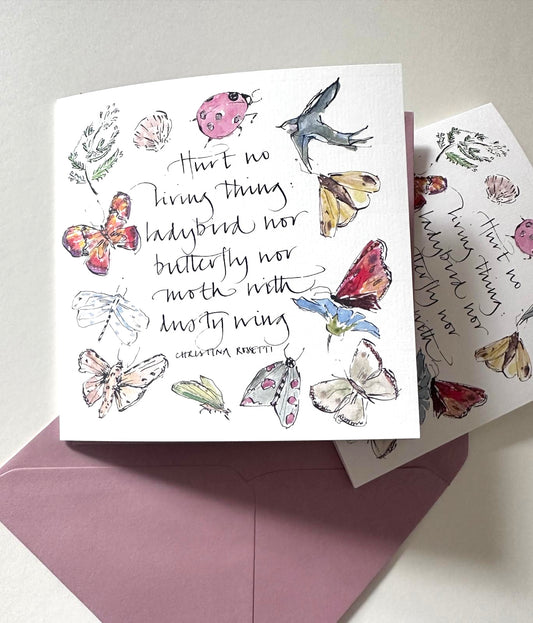 Hurt no
living thing:
ladybird nor
butterfly nor
moth with
dusty wing
CHRISTINA ROSSETTI
Hurt no
living thing
ladybird nor
butterfly nor
with